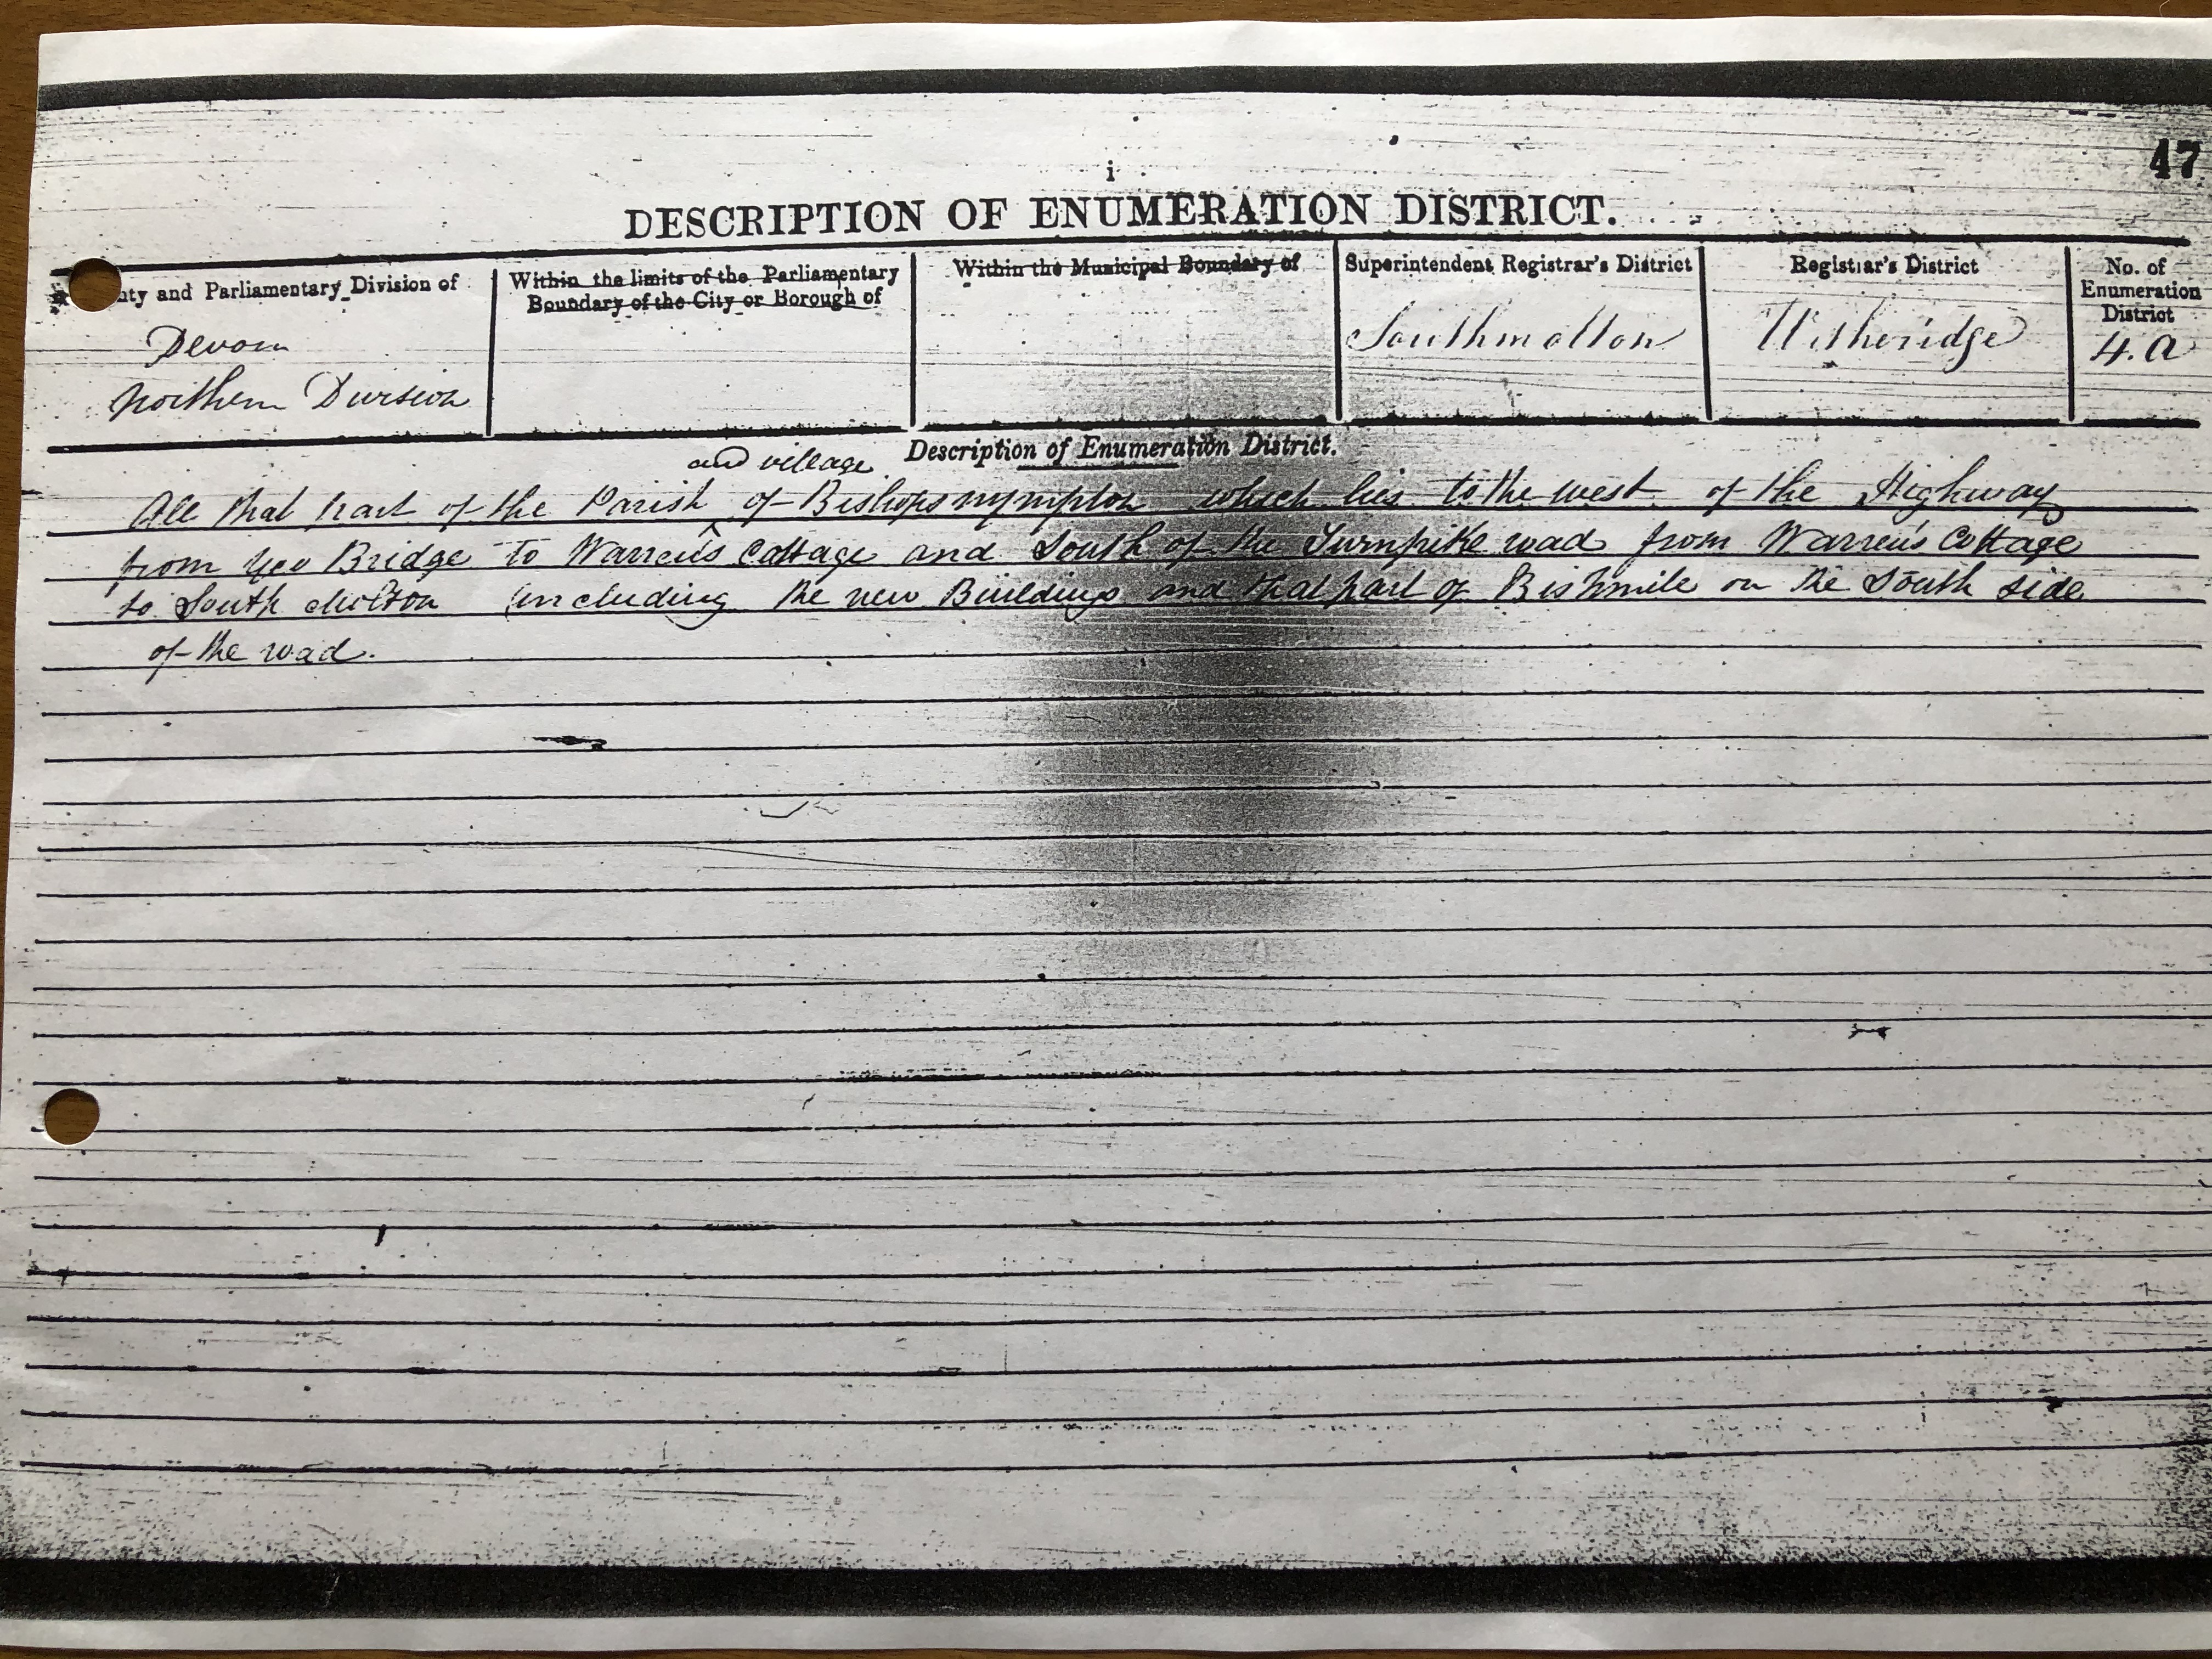 47
i
DESCRIPTION OF ENUMERATION DISTRICT.
nty and Parliamentary Division of
Within the limits of the Parliamentary
Boundary of the City or Borough of
Within the Municipal Boundary of
Superintendent Registrar's District
Registrar's District
No. of
Enumeration
District
Devon
Northern Division
Southmolton
Witheridge
4.a
Description of Enumeration District.
and village
All that part of the Parish of Bishopsnympton which lies to the west of the Highway
from Yeo Bridge to Warren's Cottage and South of the Turnpike road from Warren's Cottage
to South Molton (including the new Buildings and that part of Bishmile on the South side
of the road.